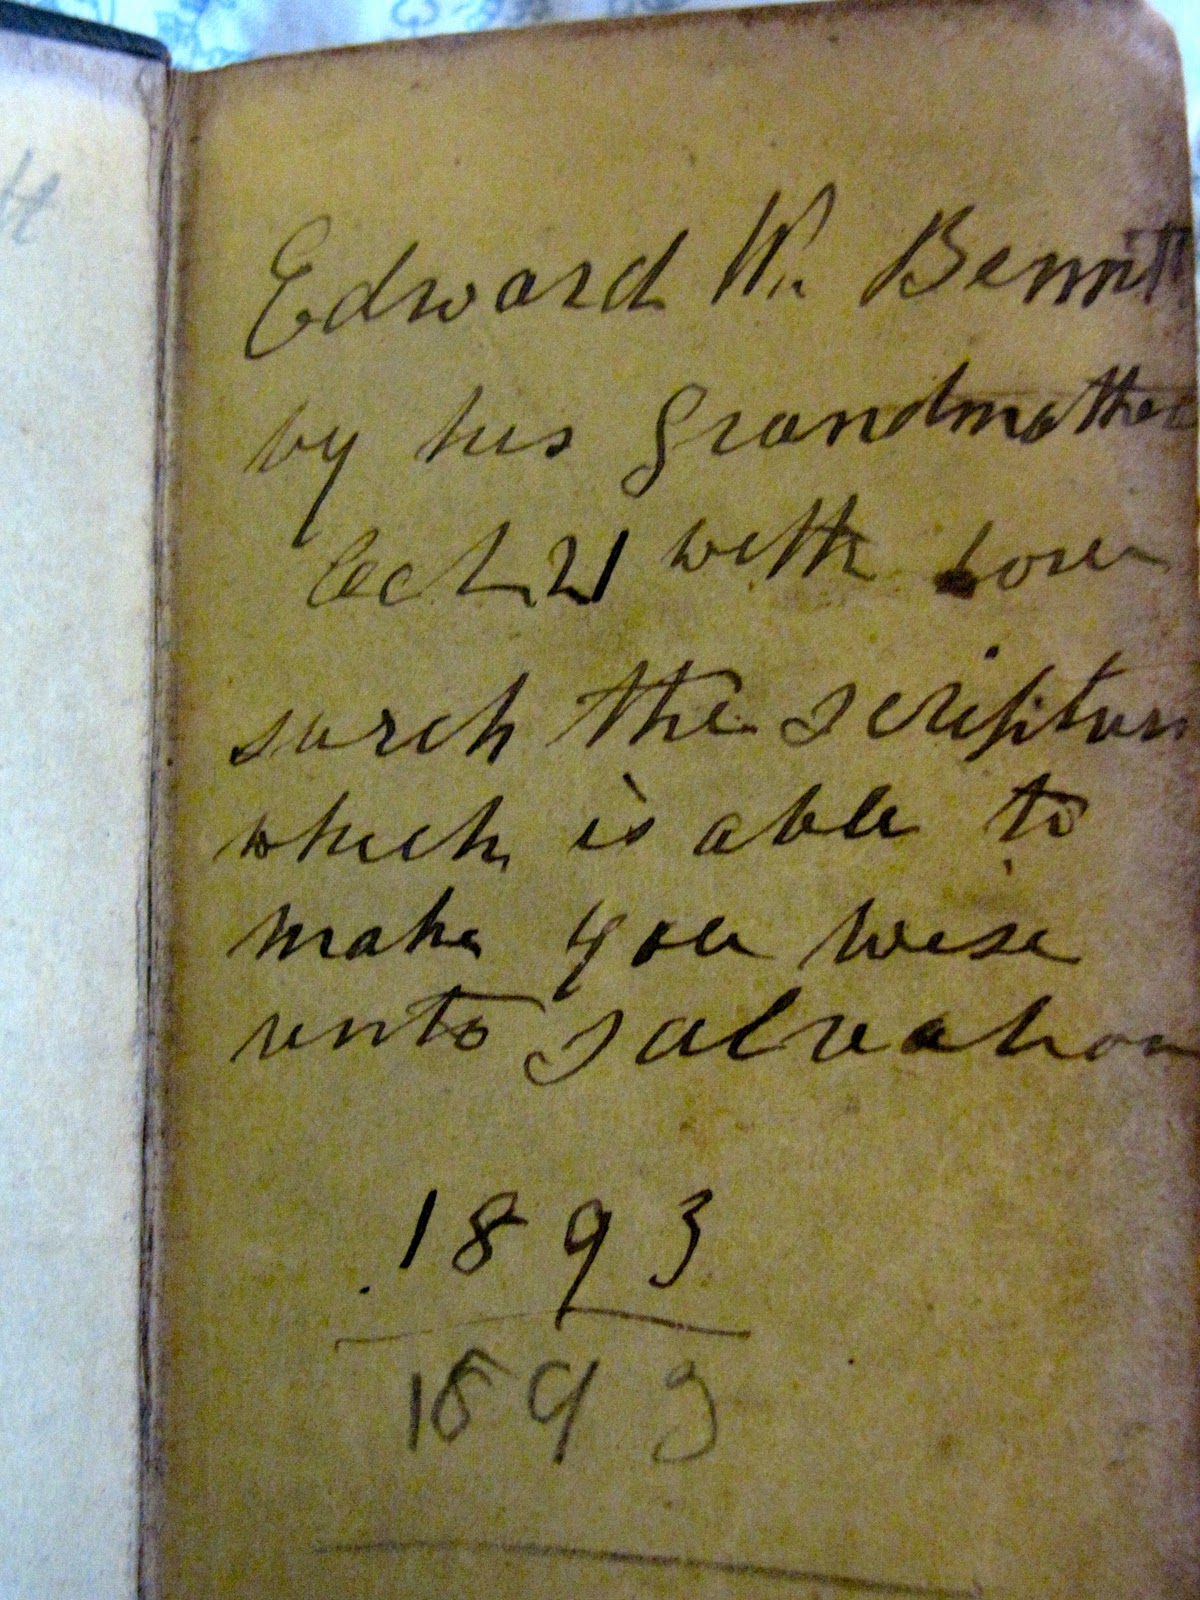 tt
Edward W. Bennitt
by his grandmother
Oct 21 with love
surch the scripturs
which is able to
make you wise
unto salvation
1893
1893